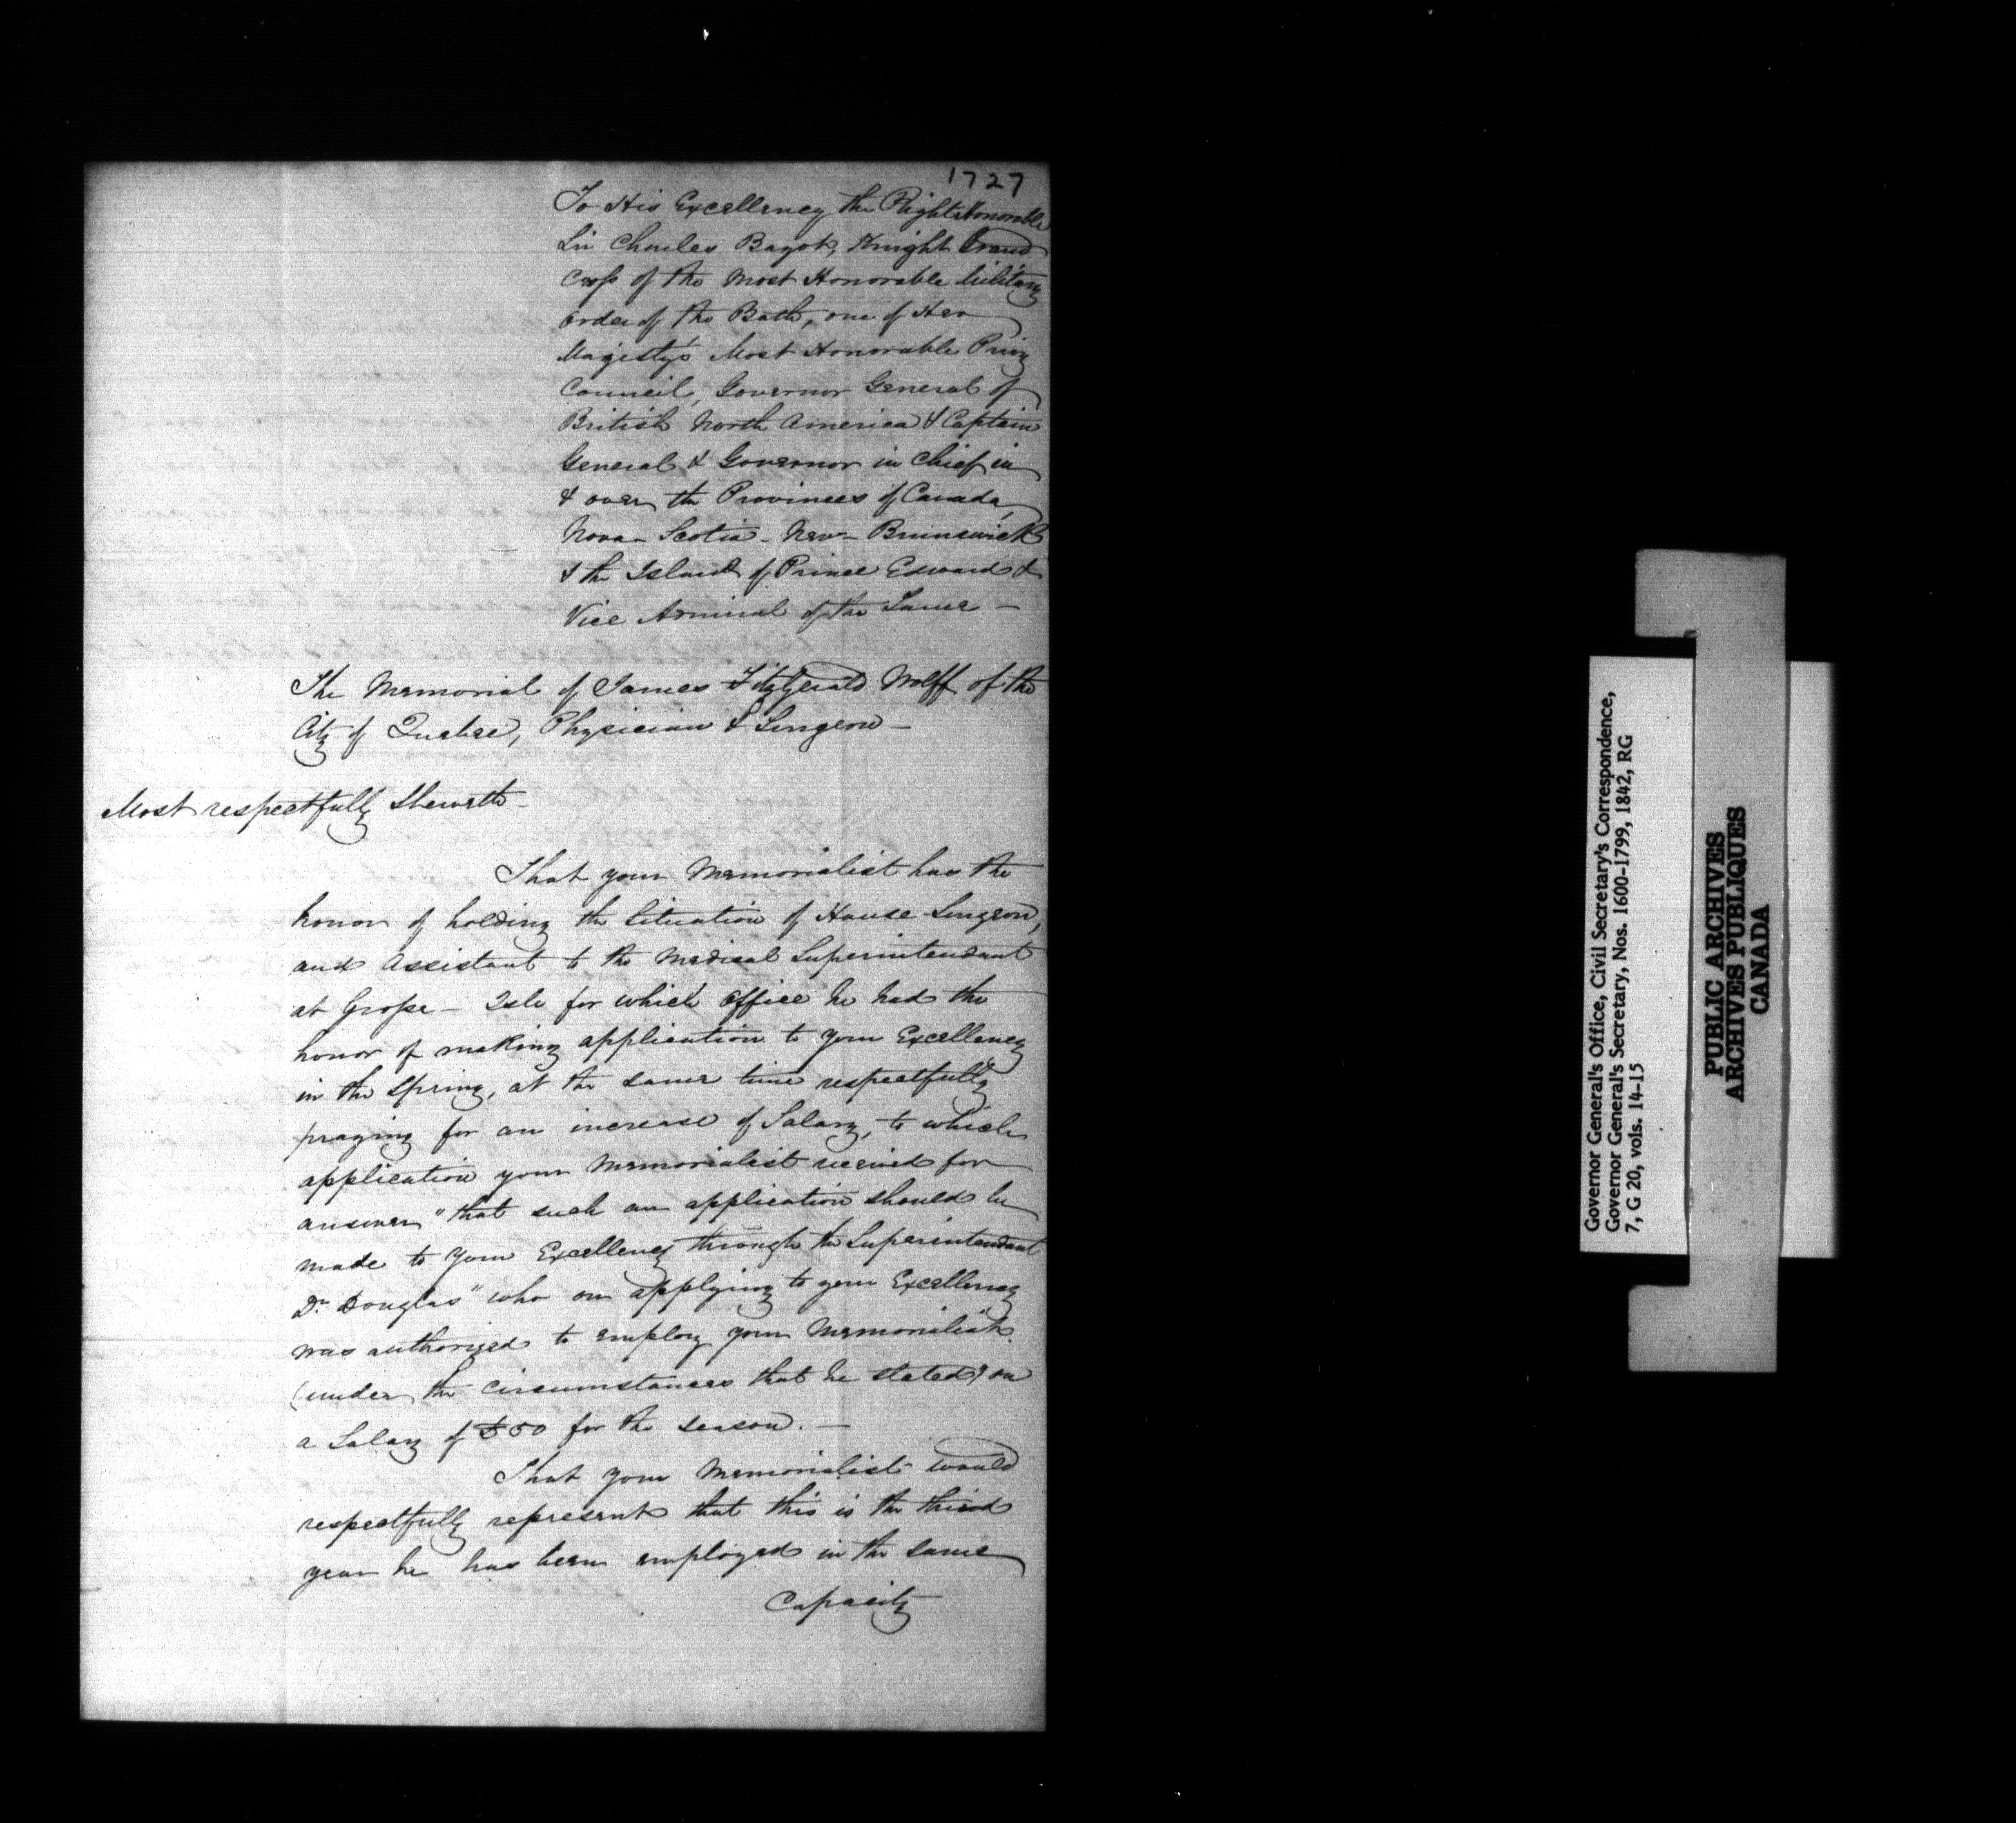 1727
To His Excellency the Right Honorable
Sir Charles Bagot, Knight Grand
Cross of the Most Honorable Military
order of the Bath, one of Her
Majesty's Most Honorable Privy
Council, Governor General of
British North America & Captain
General & Governor in Chief in
& over the Provinces of Canada,
Nova-Scotia - New-Brunswick
& the Island of Prince Edward &
Vice Admiral of the Same —
The Memorial of James FitzGerald Wolff of the
City of Quebec, Physician & Surgeon —
Most respectfully Sheweth -
That your Memorialist has the
honor of holding the Situation of House Surgeon,
and Assistant to the Medical Superintendant
at Grosse - Isle for which Office he had the
honor of making application to your Excellency
in the Spring, at the same time respectfully
praying for an increase of Salary, to which
application your Memorialist received for
answer "that such an application should be
made to your Excellency through the Superintendant
Dr. Douglas" who on applying to your Excellency
was authorized to employ your Memorialist
(under the Circumstances that he stated) on
a Salary of £50 for the Season. —
That your Memorialist would
respectfully represent that this is the third
year he has been employed in the same
Capacity
Governor General's Office, Civil Secretary's Correspondence,
Governor General's Secretary, Nos. 1600-1799, 1842, RG
7, G 20, vols. 14-15
PUBLIC ARCHIVES
ARCHIVES PUBLIQUES
CANADA